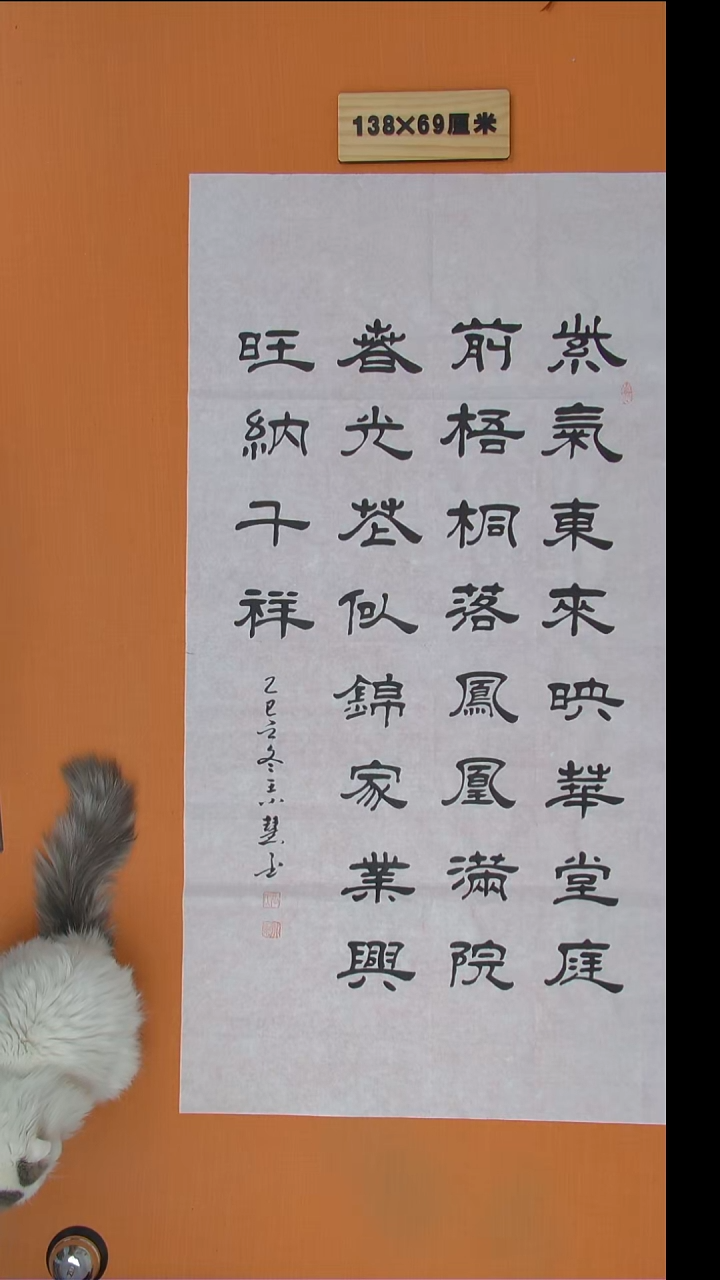 138×69厘米
紫氣東來映華堂庭
前梧桐落鳳凰滿院
春光花似錦家業興
旺納千祥
乙巳立冬慧书